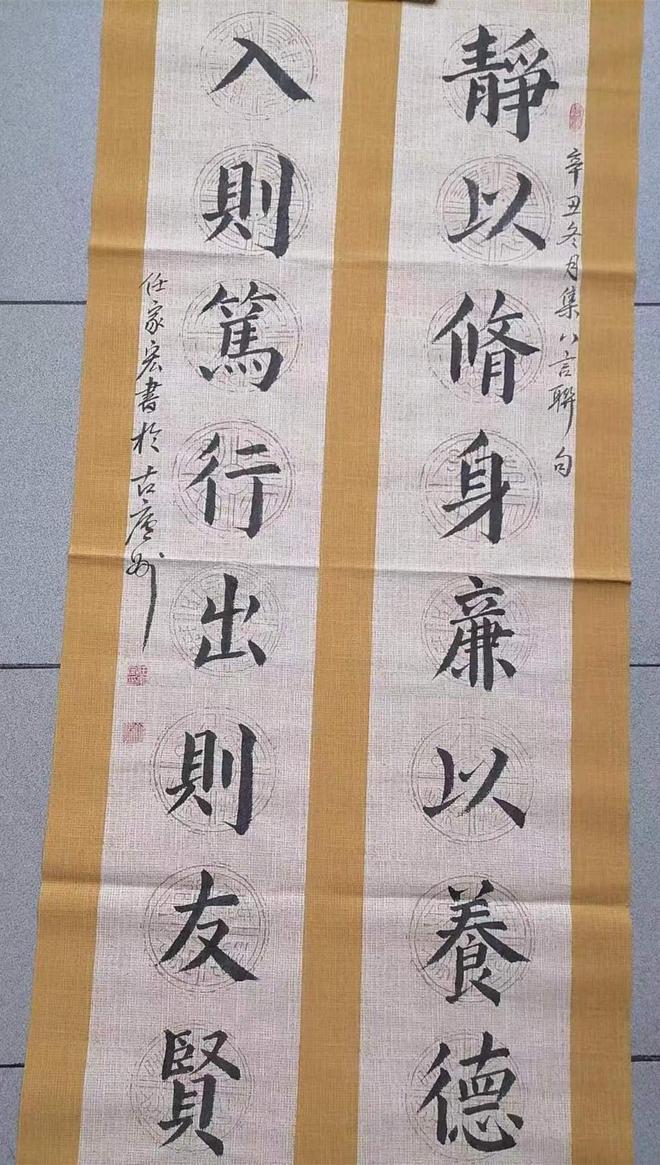 辛丑冬月集八言聯句
靜以脩身廉以養德
入則篤行出則友賢
任家宏書於古廬州